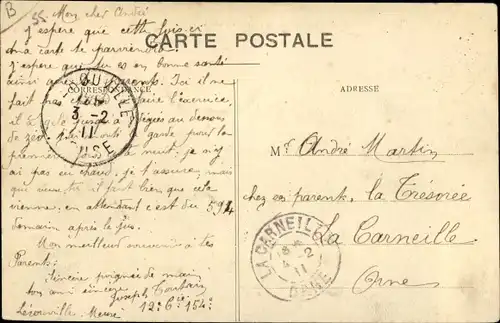 B
55 Mon cher André
J'espère que cette fois-ci
ma carte te parviendra
CARTE POSTALE
J'espère que tu es en bonne santé
ainsi que tes parents. Ici il ne
CORRESPONDANCE
ADRESSE
fait pas chaud faire l'exercice,
il gèle jusqu'à degrés au dessous
de zéro. J'ai monté la garde pour la
première fois la nuit: je n'y
ai pas eu chaud, je t'assure, mais
que veux-tu il faut bien que cela
vienne, en attendant c'est du 594
demain après le jus.
Mon meilleur souvenir à tes
Parents.
Sincère poignée de main
ton ami sincère
Joseph
12e Cie 154e
Lérouville Meuse
3 -2
11
MEUSE
Mr André Martin
chez ses parents, la Trésorée
La Carneille
Orne
LA CARNEILLE
4 -2
11
ORNE